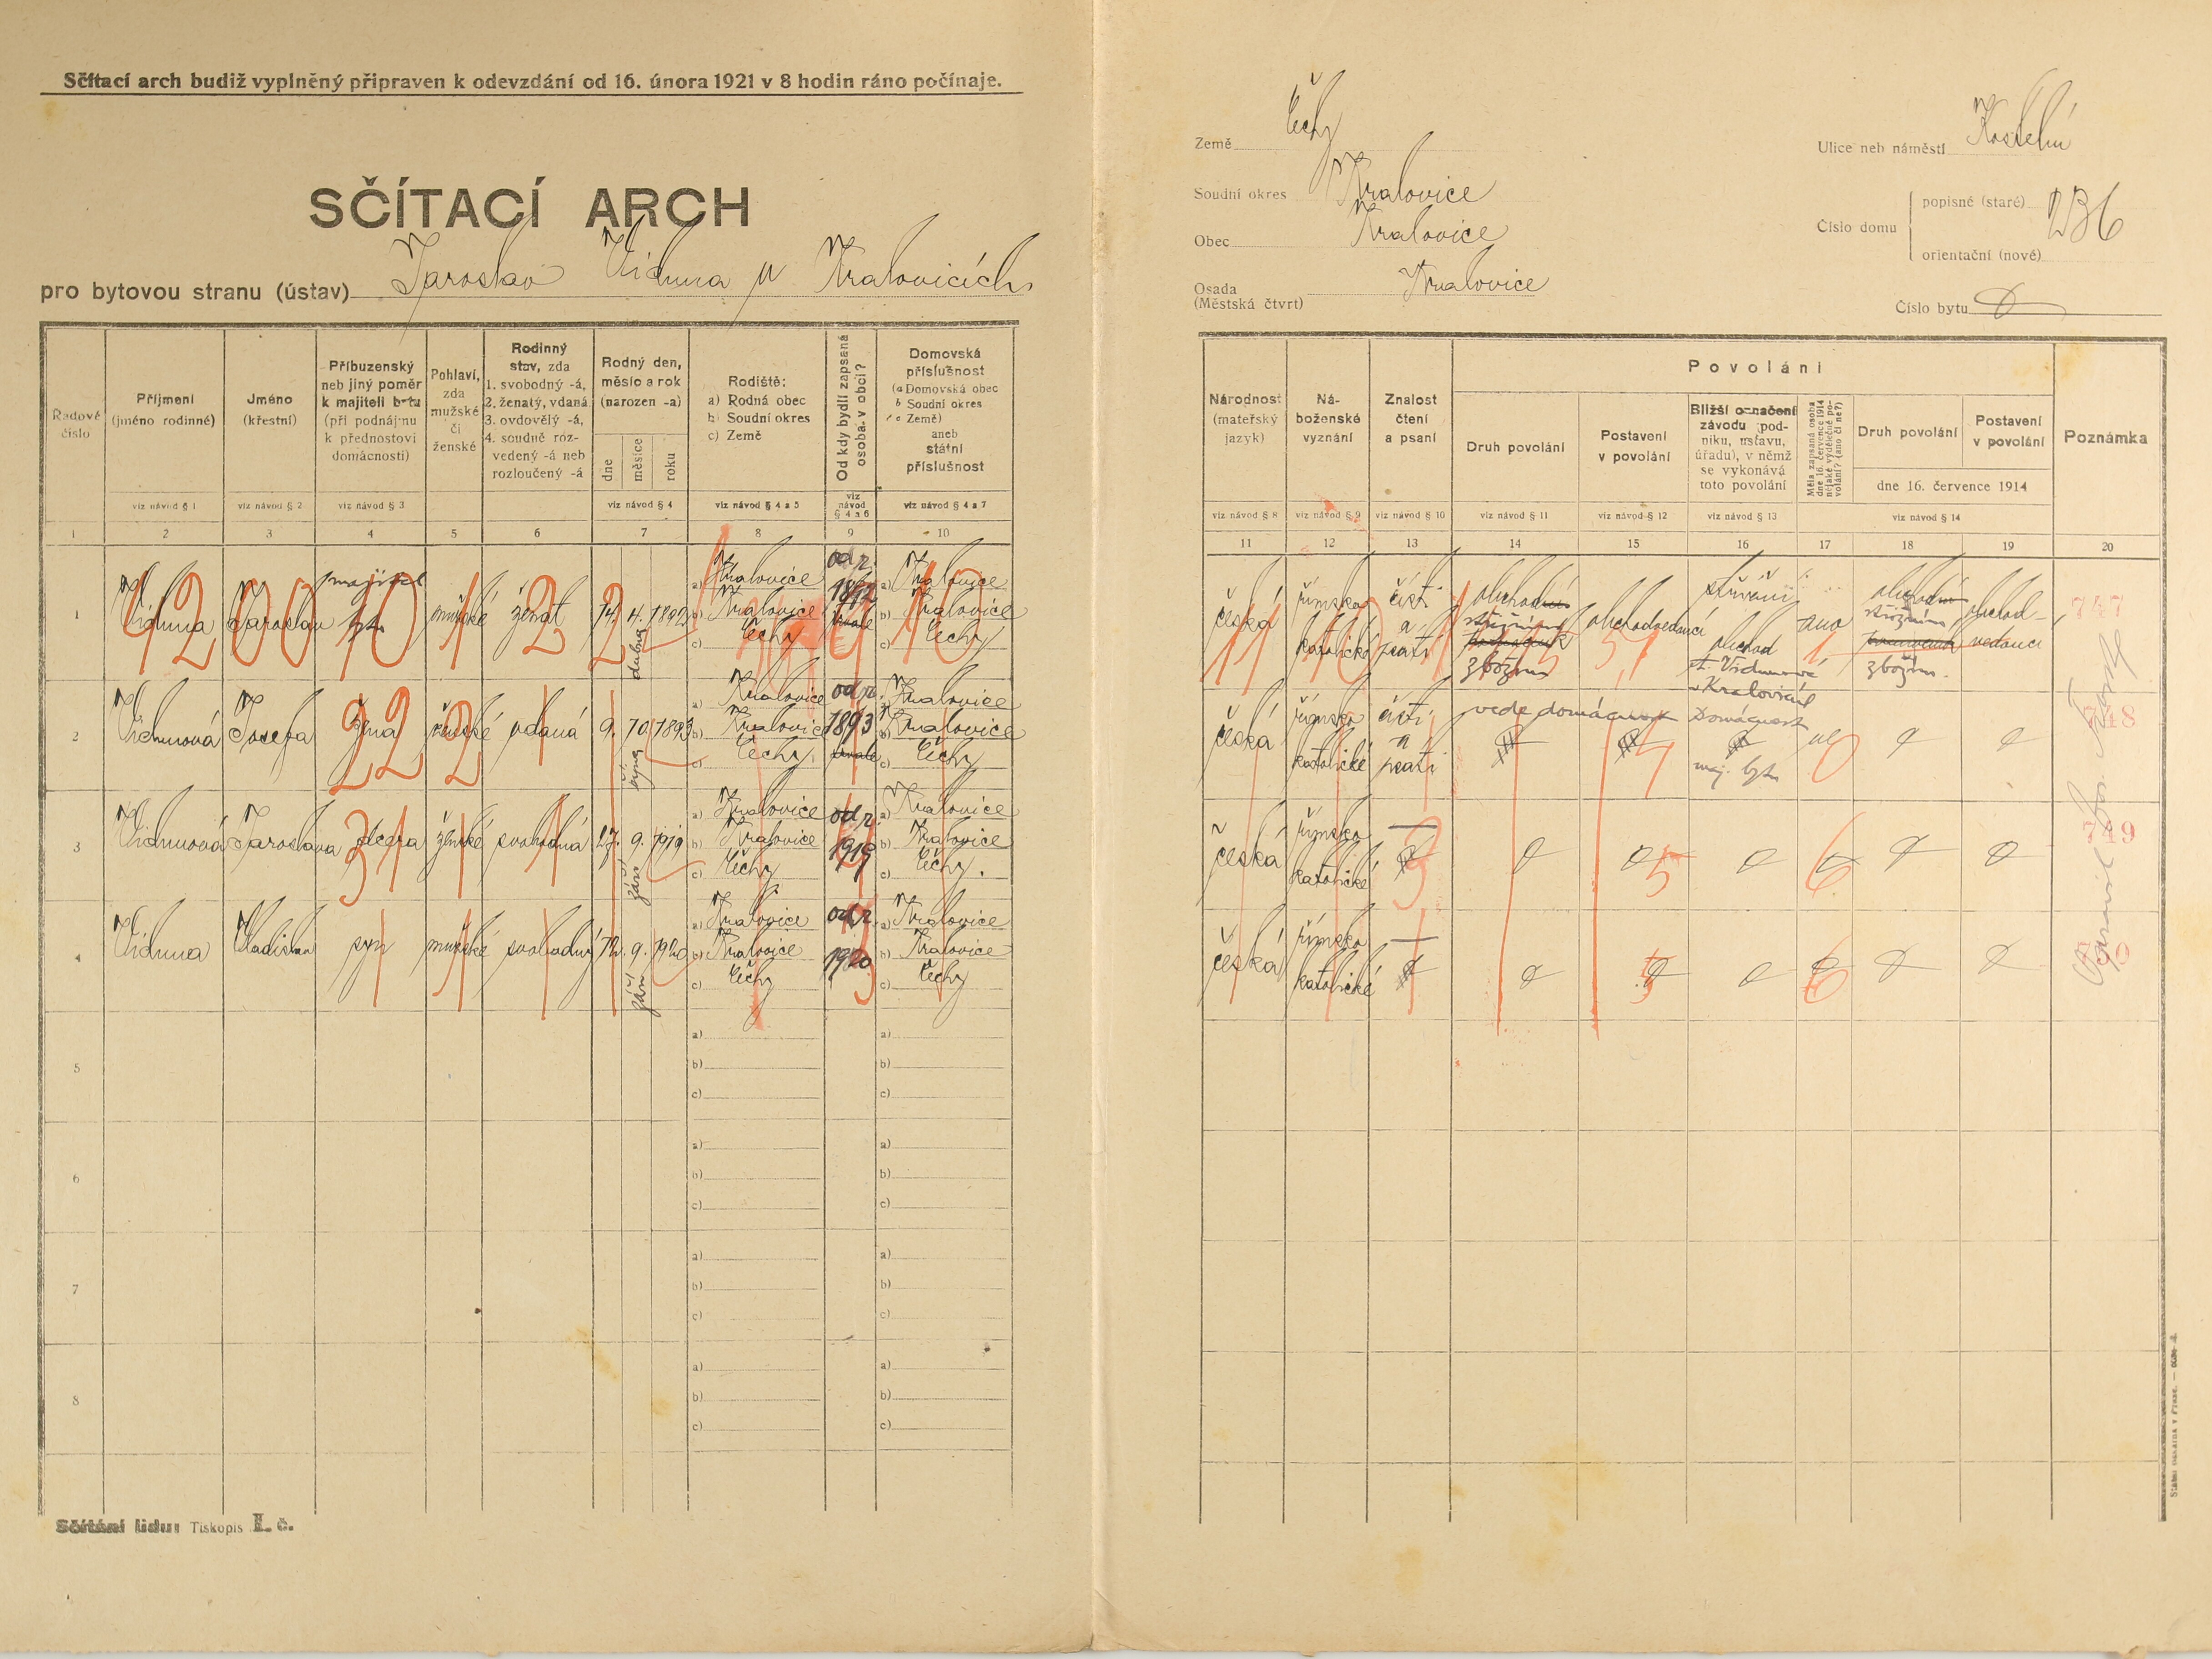 Sčítací arch budiž vyplněný připraven k odevzdání od 16. února 1921 v 8 hodin ráno počínaje.
SČÍTACÍ ARCH
pro bytovou stranu (ústav) Jaroslav Viduna v Kralovicích
Řadové číslo
Příjmení (jméno rodinné)
viz návod § 1
Jméno (křestní)
viz návod § 2
Příbuzenský neb jiný poměr k majiteli bytu (při podnájmu k přednostovi domácnosti)
viz návod § 3
Pohlaví, zda mužské či ženské
Rodinný stav, zda
1. svobodný -á,
2. ženatý, vdaná
3. ovdovělý -á,
4. soudně roz-
vedený -á neb
rozloučený -á
Rodný den, měsíc a rok (narozen -a)
dne měsíce roku
viz návod § 4
Rodiště:
a) Rodná obec
b) Soudní okres
c) Země
viz návod § 4 a 5
Od kdy bydlí zapsaná osoba v obci?
viz návod § 4 a 6
Domovská příslušnost
(a Domovská obec
b Soudní okres
c Země)
aneb státní příslušnost
viz návod § 4 a 7
1 2 3 4 5 6 7 8 9 10
1 Viduna Jaroslav majitel bytu mužské ženat 14. 4. dubna 1892 a) Kralovice b) Kralovice c) Čechy od r. 1892 a) Kralovice b) Kralovice c) Čechy
2 Vidunová Josefa žena ženské vdaná 9. 10. října 1893 a) Kralovice b) Kralovice c) Čechy od r. 1893 a) Kralovice b) Kralovice c) Čechy
3 Vidunová Jaroslava dcera ženské svobodná 27. 9. září 1919 a) Kralovice b) Kralovice c) Čechy od r. 1919 a) Kralovice b) Kralovice c) Čechy.
4 Viduna Vladislav syn mužské svobodný 12. 9. září 1920 a) Kralovice b) Kralovice c) Čechy od r. 1920 a) Kralovice b) Kralovice c) Čechy
5 a) b) c) a) b) c)
6 a) b) c) a) b) c)
7 a) b) c) a) b) c)
8 a) b) c) a) b) c)
Sčítání lidu: Tiskopis I. č.
Země Čechy
Soudní okres Kralovice
Obec Kralovice
Osada (Městská čtvrt) Kralovice
Ulice neb náměstí Kostelní
Číslo domu
popisné (staré) 236
orientační (nové)
Číslo bytu
Národnost (mateřský jazyk)
viz návod § 8
Náboženské vyznání
viz návod § 9
Znalost čtení a psaní
viz návod § 10
Povolání
Druh povolání
viz návod § 11
Postavení v povolání
viz návod § 12
Bližší označení závodu (podniku, ústavu, úřadu), v němž se vykonává toto povolání
viz návod § 13
Měla zapsaná osoba dne 16. července 1914 nějaké výdělečné povolání? (ano či ne?)
Druh povolání
Postavení v povolání
dne 16. července 1914
viz návod § 14
Poznámka
11 12 13 14 15 16 17 18 19 20
česká římsko katolické čísti a psáti obchod střižním zbožím obchodvedoucí obchod Vidunová v Kralovicích ano obchod střižním zbožím. obchodvedoucí 747
česká římsko katolické čísti a psáti vede domácnost Domácnost maj. bytu ne 748
česká římsko katolické 749
česká římsko katolické